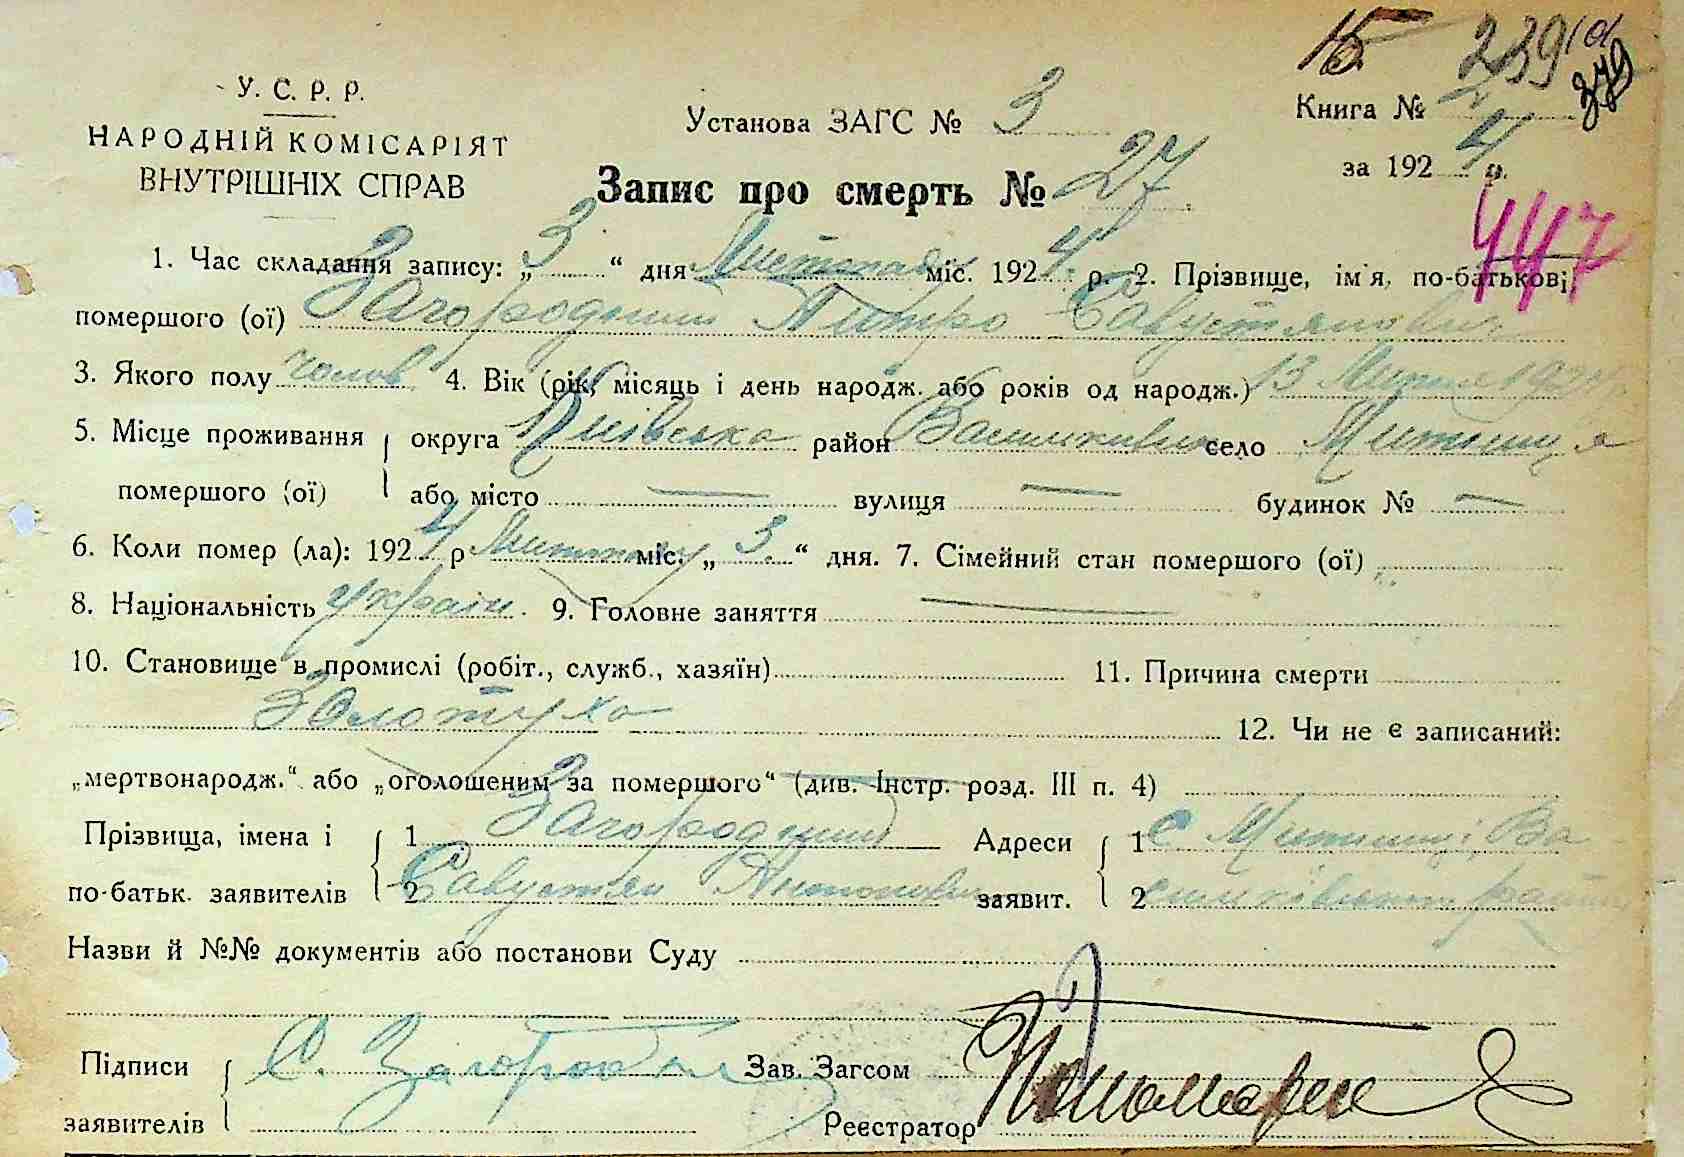 15 239
379
У. С. Р. Р.
НАРОДНІЙ КОМІСАРІЯТ
ВНУТРІШНІХ СПРАВ
Установа ЗАГС № 3
Книга №
за 1924 р.
Запис про смерть № 27
447
1. Час складання запису: „3“ дня Листопада міс. 1924 р. 2. Прізвище, ім'я, по-батькові
помершого (ої) Загородний Петро Савустянович
3. Якого полу чолов 4. Вік (рік, місяць і день народж. або років од народж.) 13 Липня 1924 р.
5. Місце проживання округа Київська район Васильківськ село Митниця
помершого (ої) або місто — вулиця — будинок № —
6. Коли помер (ла): 1924 р Листопаду міс. „3“ дня. 7. Сімейний стан помершого (ої)
8. Національність україн. 9. Головне заняття —
10. Становище в промислі (робіт., служб., хазяїн) 11. Причина смерти
Золотуха 12. Чи не є записаний:
„мертвонародж.“ або „оголошеним за помершого“ (див. Інстр. розд. III п. 4)
Прізвища, імена і 1 Загородний Адреси 1 с Митниці Ва
по-батьк. заявителів 2 Савустян Антонович заявит. 2 сильківського району
Назви й №№ документів або постанови Суду
Підписи С. Загородний Зав. Загсом
заявителів Реєстратор Пономарен